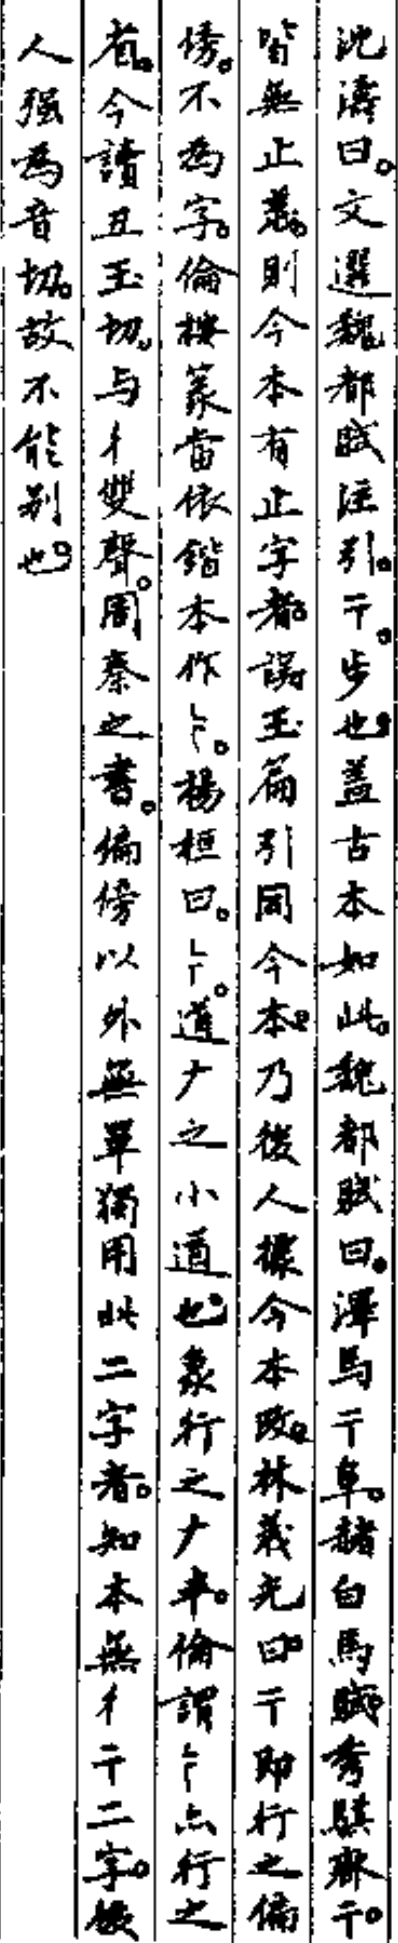 沈濤曰。文選魏都賦注引。亍。步也。蓋古本如此。魏都賦曰。澤馬亍阜。赭白馬賦秀騏齊亍。
皆無止義。則今本有止字者。誤。玉篇引同今本。乃後人據今本改。林義光曰。亍即行之偏
傍。不為字。倫按篆當依鍇本作。楊桓曰。道𠂇之小道也。象行之𠂇半。倫謂亦行之
省。今讀丑玉切。与彳雙聲。周秦之書。偏傍以外無單獨用此二字者。知本無彳亍二字。後
人强為音切。故不能别也。